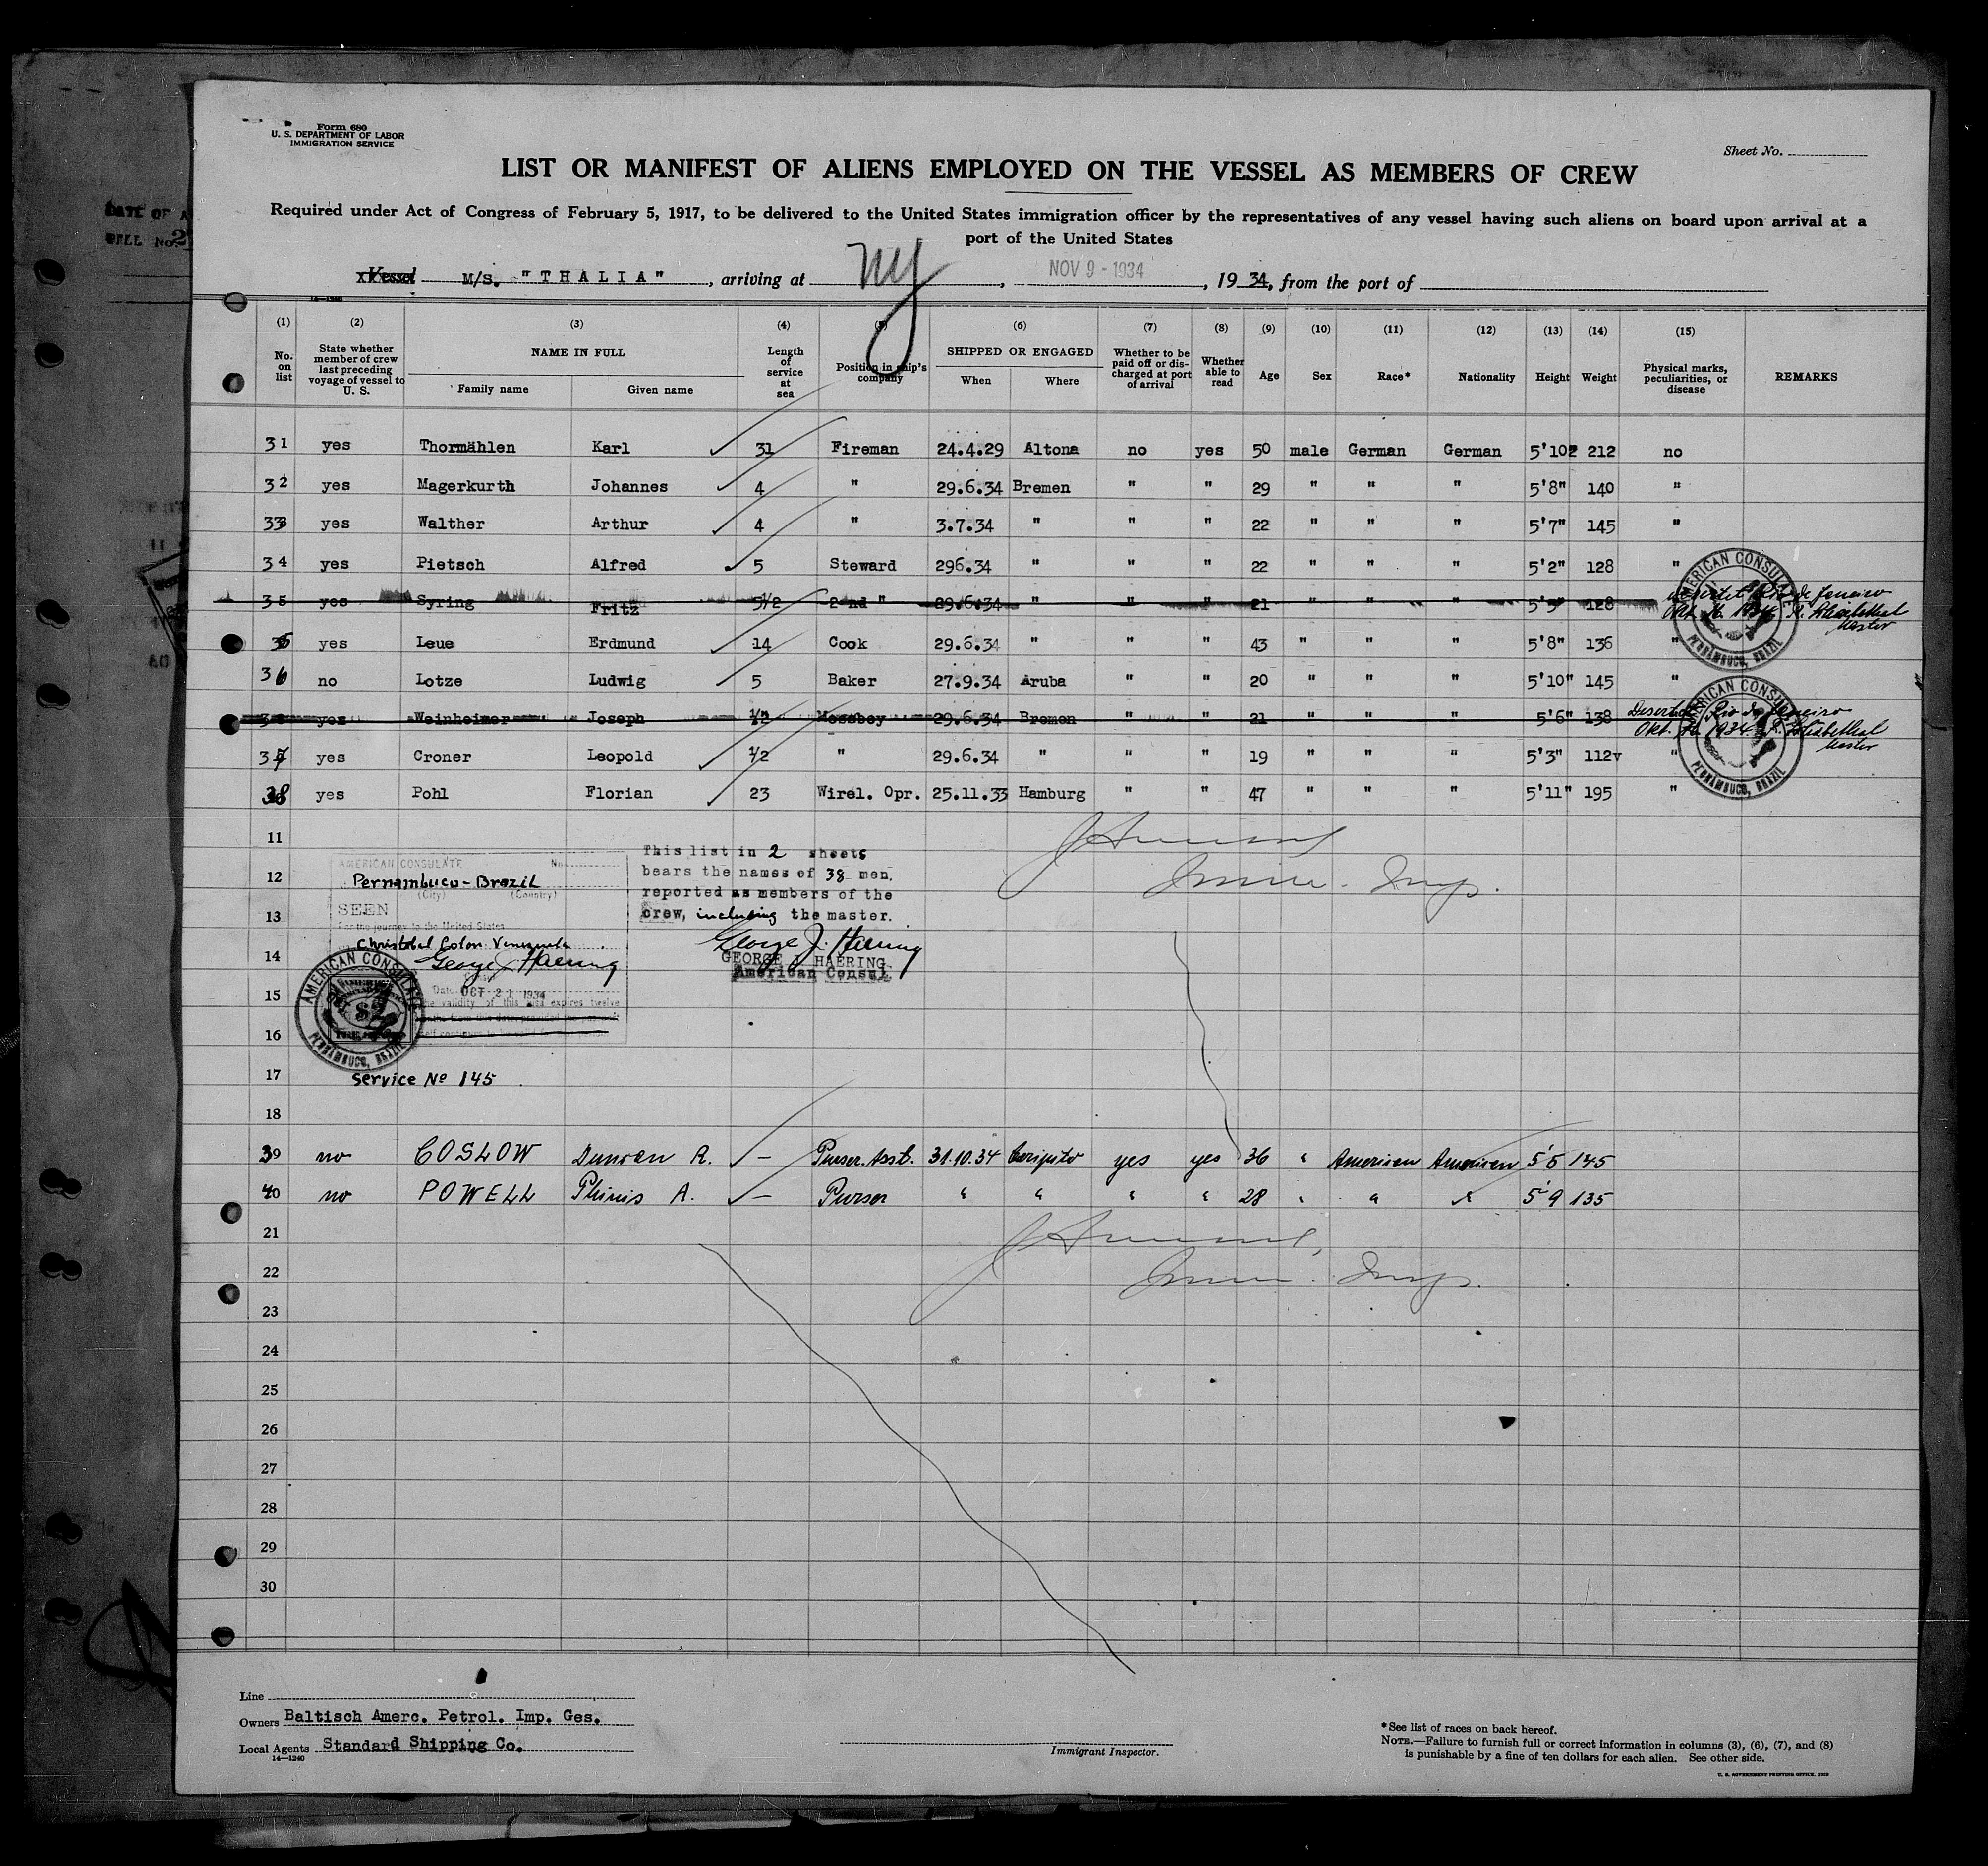 Form 680
U. S. DEPARTMENT OF LABOR
IMMIGRATION SERVICE
Sheet No.
LIST OR MANIFEST OF ALIENS EMPLOYED ON THE VESSEL AS MEMBERS OF CREW
Required under Act of Congress of February 5, 1917, to be delivered to the United States immigration officer by the representatives of any vessel having such aliens on board upon arrival at a
port of the United States
Vessel M/S. "THALIA", arriving at NY, NOV 9 - 1934, 1934, from the port of
(1) (2) (3) (4) (5) (6) (7) (8) (9) (10) (11) (12) (13) (14) (15)
No. on list State whether member of crew last preceding voyage of vessel to U. S. NAME IN FULL Family name Given name Length of service at sea Position in ship's company SHIPPED OR ENGAGED When Where Whether to be paid off or discharged at port of arrival Whether able to read Age Sex Race* Nationality Height Weight Physical marks, peculiarities, or disease REMARKS
31 yes Thormählen Karl 31 Fireman 24.4.29 Altona no yes 50 male German German 5'10" 212 no
32 yes Magerkurth Johannes 4 " 29.6.34 Bremen " " 29 " " " 5'8" 140 "
33 yes Walther Arthur 4 " 3.7.34 " " " 22 " " " 5'7" 145 "
34 yes Pietsch Alfred 5 Steward 296.34 " " " 22 " " " 5'2" 128 "
35 yes Syring Fritz 5½ 2nd " 29.6.34 " " " 21 " " " 5'5" 128 Rio de Janeiro
Okt. 1934 Master
35 yes Leue Erdmund 14 Cook 29.6.34 " " " 43 " " " 5'8" 136 "
36 no Lotze Ludwig 5 Baker 27.9.34 Aruba " " 20 " " " 5'10" 145 "
yes Weinheimer Joseph ½ Messboy 29.6.34 Bremen " " 21 " " " 5'6" 138 Deserted Rio de Janeiro
Okt. 1934 Master
37 yes Croner Leopold ½ " 29.6.34 " " " 19 " " " 5'3" 112v "
38 yes Pohl Florian 23 Wirel. Opr. 25.11.33 Hamburg " " 47 " " " 5'11" 195 "
AMERICAN CONSULATE
PERNAMBUCO, BRAZIL
AMERICAN CONSULATE
PERNAMBUCO, BRAZIL
11
12
13
14
15
16
17
18
Immig. Insp.
AMERICAN CONSULATE No.
Pernambuco-Brazil
(City) (Country)
SEEN
For the journey to the United States
Christobal Colon Venezuela
George J. Haering
Date OCT 21 1934
The validity of this visa expires twelve
AMERICAN CONSULATE
PERNAMBUCO, BRAZIL
Service No 145
This list in 2 sheets
bears the names of 38 men,
reported as members of the
crew, including the master.
George J. Haering
GEORGE J. HAERING
American Consul.
39 no COSLOW Duncan R. — Purser. Asst. 31.10.34 Caripito yes yes 36 " American American 5'5 145
40 no POWELL Phinis A. — Purser " " " " 28 " " " 5'9 135
Immig. Insp.
21
22
23
24
25
26
27
28
29
30
Line
Owners Baltisch Amerc. Petrol. Imp. Ges.
Local Agents Standard Shipping Co.
14—1240
Immigrant Inspector.
*See list of races on back hereof.
NOTE.—Failure to furnish full or correct information in columns (3), (6), (7), and (8)
is punishable by a fine of ten dollars for each alien. See other side.
U. S. GOVERNMENT PRINTING OFFICE